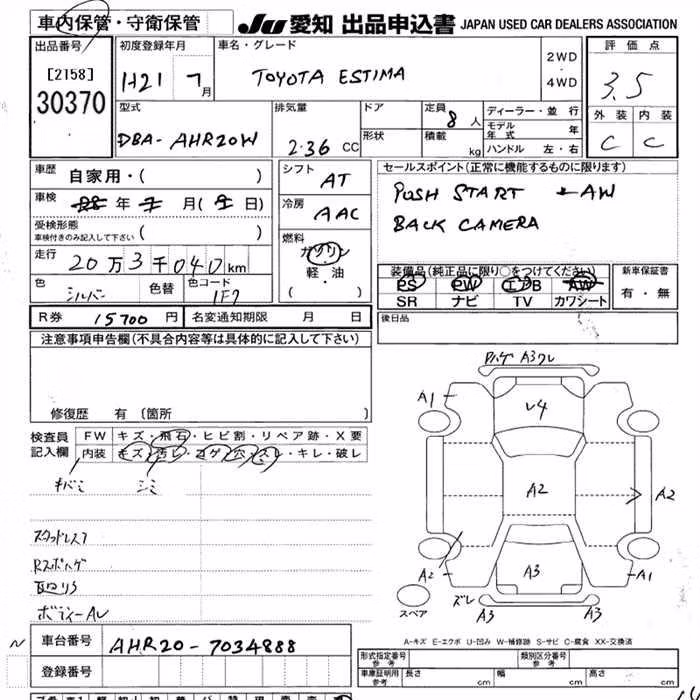 車内保管・守衛保管
JU 愛知 出品申込書 JAPAN USED CAR DEALERS ASSOCIATION
出品番号 初度登録年月 車名・グレード 2WD・4WD 評価点
[2158] 30370 H21 7月 TOYOTA ESTIMA 3.5
型式 排気量 ドア 定員 8人 ディーラー・並行 外装 内装
モデル年式 年
DBA-AHR20W 2.36 CC 形状 積載 kg ハンドル 左・右 C C
車歴 自家用・( ) シフト AT セールスポイント(正常に機能するものに限ります)
車検 年 月( 日) 冷房 AAC PUSH START AW
受検形態 車検付きのみ記入して下さい ( ) BACK CAMERA
燃料 ガソリン 軽・油 ( )
走行 20万3千040km
装備品(純正品に限り○をつけてください) 新車保証書
PS PW エアB AW 有・無
SR ナビ TV カワシート
色 シルバー 色替 色コード 1F7
R券 15700円 名変通知期限 月 日 後日品
注意事項申告欄(不具合内容等は具体的に記入して下さい)
修復歴 有 〔箇所 〕
検査員記入欄 FW キズ・飛石・ヒビ割・リペア跡・X要
内装 キズ・汚レ・コゲ・穴・スレ・キレ・破レ
キバミ シミ
スタッドレス7
Rスポハゲ
ボディーAU
Pハゲ A3 ワレ
A1
レ4
A2
A2
A2 A3 A1
スペア ズレ A3 A3
A-キズ E-エクボ U-凹み W-補修跡 S-サビ C-腐食 XX-交換済
N 車台番号 AHR20-7034888
登録番号
形式指定番号 参考 類別区分番号 参考
車庫証明用 参考 長さ cm 幅 cm 高さ cm